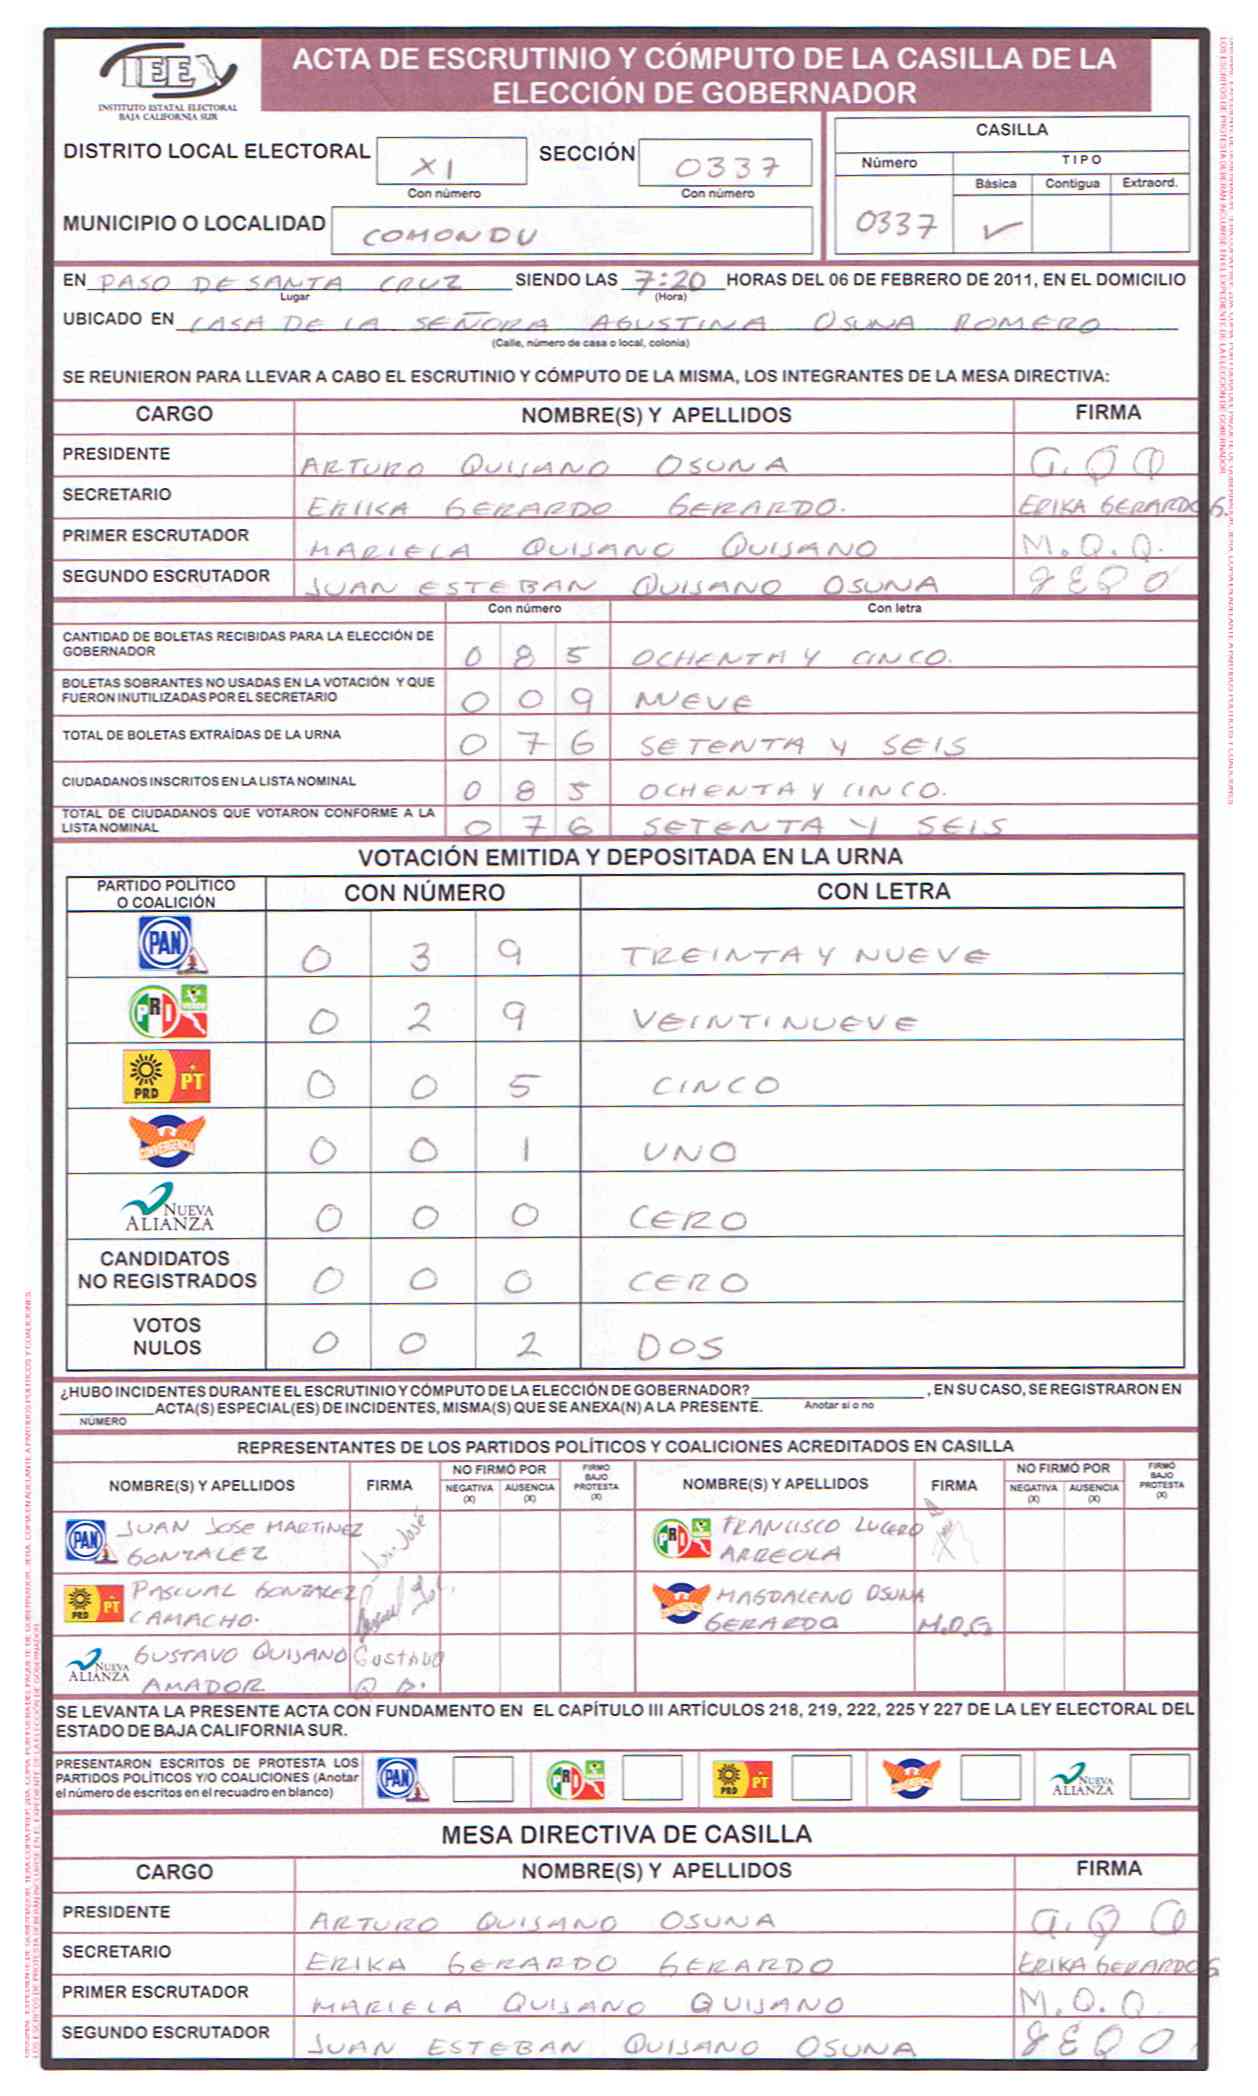 IEE
INSTITUTO ESTATAL ELECTORAL
BAJA CALIFORNIA SUR
ACTA DE ESCRUTINIO Y CÓMPUTO DE LA CASILLA DE LA
ELECCIÓN DE GOBERNADOR
DISTRITO LOCAL ELECTORAL XI SECCIÓN 0337
Con número Con número
MUNICIPIO O LOCALIDAD COMONDU
CASILLA
Número TIPO
Básica Contigua Extraord.
0337 ✓
EN PASO DE SANTA CRUZ SIENDO LAS 7:20 HORAS DEL 06 DE FEBRERO DE 2011, EN EL DOMICILIO
Lugar (Hora)
UBICADO EN CASA DE LA SEÑORA AGUSTINA OSUNA ROMERO
(Calle, número de casa o local, colonia)
SE REUNIERON PARA LLEVAR A CABO EL ESCRUTINIO Y CÓMPUTO DE LA MISMA, LOS INTEGRANTES DE LA MESA DIRECTIVA:
CARGO NOMBRE(S) Y APELLIDOS FIRMA
PRESIDENTE ARTURO QUIJANO OSUNA a.Q O
SECRETARIO ERIKA GERARDO GERARDO. ERIKA GERARDO G.
PRIMER ESCRUTADOR MARIELA QUIJANO QUIJANO M.Q.Q.
SEGUNDO ESCRUTADOR JUAN ESTEBAN QUIJANO OSUNA JEQO
Con número Con letra
CANTIDAD DE BOLETAS RECIBIDAS PARA LA ELECCIÓN DE
GOBERNADOR 0 8 5 OCHENTA Y CINCO.
BOLETAS SOBRANTES NO USADAS EN LA VOTACIÓN Y QUE
FUERON INUTILIZADAS POR EL SECRETARIO 0 0 9 NUEVE
TOTAL DE BOLETAS EXTRAÍDAS DE LA URNA 0 7 6 SETENTA Y SEIS
CIUDADANOS INSCRITOS EN LA LISTA NOMINAL 0 8 5 OCHENTA Y CINCO.
TOTAL DE CIUDADANOS QUE VOTARON CONFORME A LA
LISTA NOMINAL 0 7 6 SETENTA Y SEIS
VOTACIÓN EMITIDA Y DEPOSITADA EN LA URNA
PARTIDO POLÍTICO
O COALICIÓN CON NÚMERO CON LETRA
PAN 0 3 9 TREINTA Y NUEVE
PRI 0 2 9 VEINTINUEVE
PRD PT 0 0 5 CINCO
CONVERGENCIA 0 0 1 UNO
NUEVA
ALIANZA 0 0 0 CERO
CANDIDATOS
NO REGISTRADOS 0 0 0 CERO
VOTOS
NULOS 0 0 2 DOS
¿HUBO INCIDENTES DURANTE EL ESCRUTINIO Y CÓMPUTO DE LA ELECCIÓN DE GOBERNADOR? , EN SU CASO, SE REGISTRARON EN
ACTA(S) ESPECIAL(ES) DE INCIDENTES, MISMA(S) QUE SE ANEXA(N) A LA PRESENTE. Anotar si o no
NÚMERO
REPRESENTANTES DE LOS PARTIDOS POLÍTICOS Y COALICIONES ACREDITADOS EN CASILLA
NOMBRE(S) Y APELLIDOS FIRMA NO FIRMÓ POR NEGATIVA (X) AUSENCIA (X) FIRMÓ BAJO PROTESTA (X) NOMBRE(S) Y APELLIDOS FIRMA NO FIRMÓ POR NEGATIVA (X) AUSENCIA (X) FIRMÓ BAJO PROTESTA (X)
PAN JUAN JOSE MARTINEZ PRI FRANCISCO LUCERO
GONZALEZ ARREOLA
PRD PT PASCUAL GONZALEZ MAGDALENO OSUNA
CAMACHO. GERARDO M.O.G
NUEVA ALIANZA GUSTAVO QUIJANO GUSTAVO
AMADOR Q A.
SE LEVANTA LA PRESENTE ACTA CON FUNDAMENTO EN EL CAPÍTULO III ARTÍCULOS 218, 219, 222, 225 Y 227 DE LA LEY ELECTORAL DEL
ESTADO DE BAJA CALIFORNIA SUR.
PRESENTARON ESCRITOS DE PROTESTA LOS
PARTIDOS POLÍTICOS Y/O COALICIONES (Anotar
el número de escritos en el recuadro en blanco) PAN PRI PRD PT NUEVA ALIANZA
MESA DIRECTIVA DE CASILLA
CARGO NOMBRE(S) Y APELLIDOS FIRMA
PRESIDENTE ARTURO QUIJANO OSUNA a.Q O
SECRETARIO ERIKA GERARDO GERARDO ERIKA GERARDO G
PRIMER ESCRUTADOR MARIELA QUIJANO QUIJANO M.Q.Q.
SEGUNDO ESCRUTADOR JUAN ESTEBAN QUIJANO OSUNA JEQO